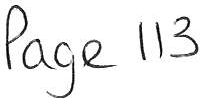 Page 113